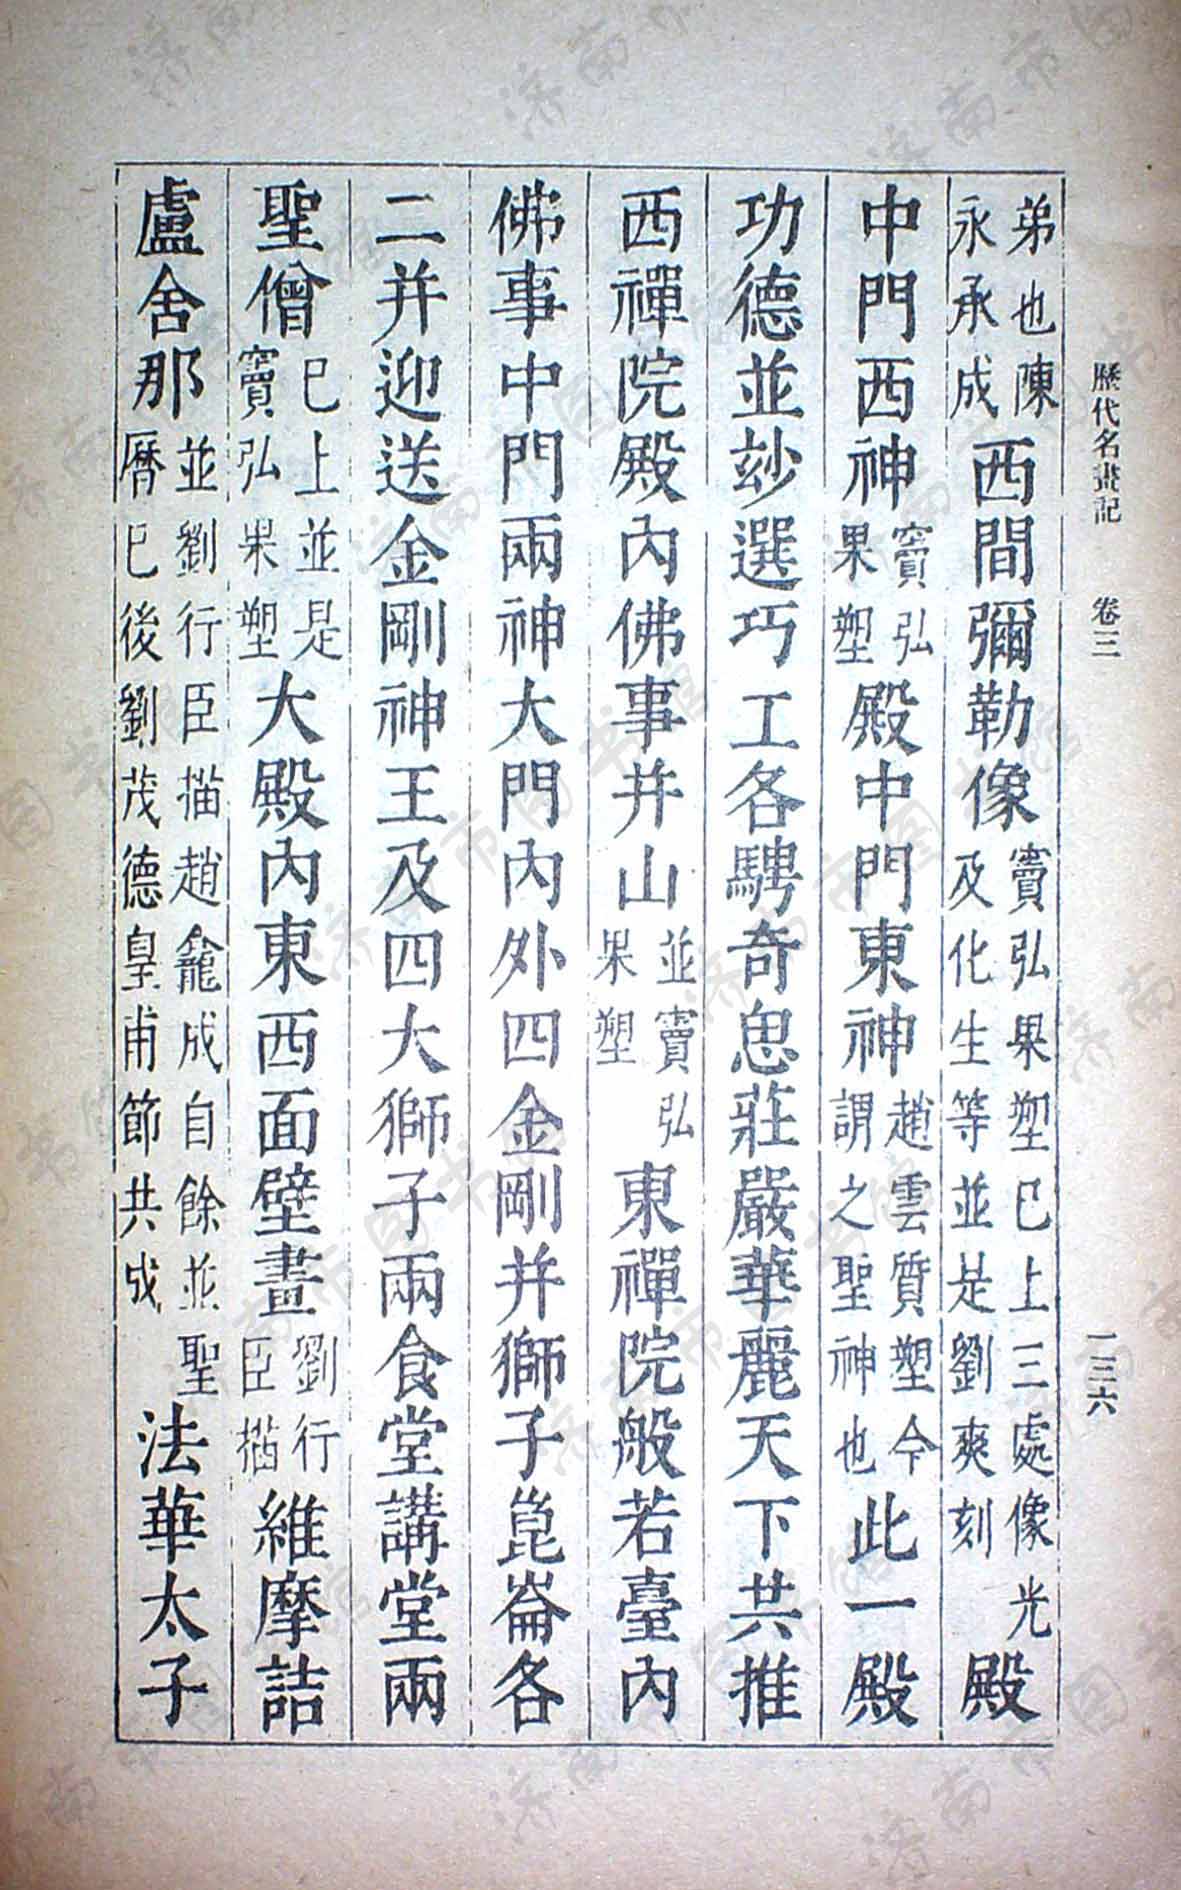 歷代名畫記 卷三 一三六
弟也陳永承成西間彌勒像竇弘果塑已上三處像光及化生等並是劉爽刻殿
中門西神竇弘果塑殿中門東神趙雲質塑今謂之聖神也此一殿
功德並玅選巧工各騁奇思莊嚴華麗天下共推
西禪院殿內佛事并山並竇弘果塑東禪院般若臺內
佛事中門兩神大門內外四金剛并獅子崑崙各
二并迎送金剛神王及四大獅子兩食堂講堂兩
聖僧已上並是竇弘果塑大殿內東西面壁畫劉行臣描維摩詰
盧舍那並劉行臣描趙龕成自餘並聖曆已後劉茂德皇甫節共成法華太子
濟南市图书馆